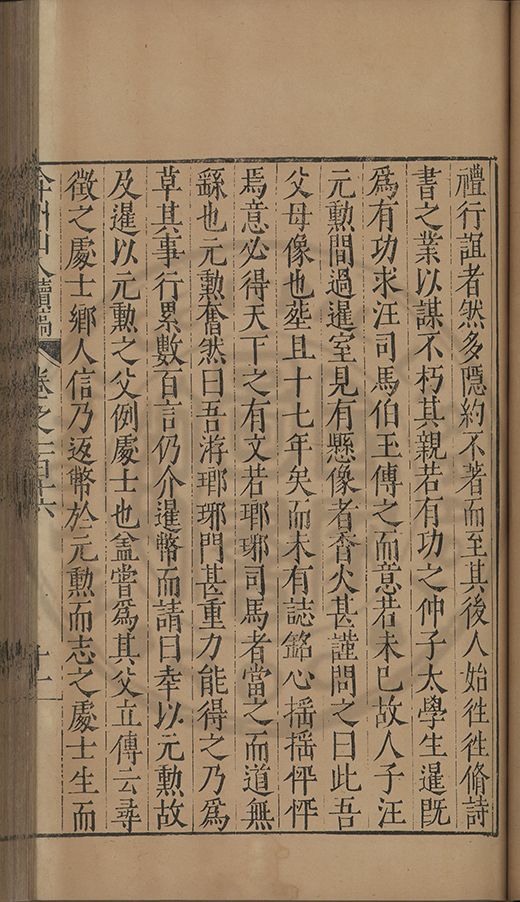 禮行誼者然多隱約不著而至其後人始徃徃脩詩
書之業以謀不朽其親若有功之仲子太學生暹旣
爲有功求汪司馬伯玉傳之而意若未已故人子汪
元勳間過暹室見有懸像者香火甚謹問之曰此吾
父母像也塟且十七年矣而未有誌銘心揺揺怦怦
焉意必得天下之有文若瑯琊司馬者當之而道無
繇也元勳奮然曰吾游瑯琊門甚重力能得之乃爲
草其事行累數百言仍介暹幣而請曰幸以元勳故
及暹以元勳之父例處士也盖嘗爲其父立傳云尋
徴之處士鄉人信乃返幣於元勳而志之處士生而
弇州山人續稿 卷之一百十六 十二